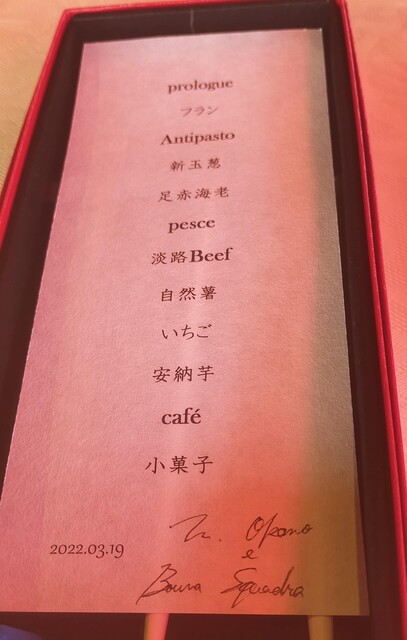 prologue
フラン
Antipasto
新玉葱
足赤海老
pesce
淡路Beef
自然薯
いちご
安納芋
café
小菓子
2022.03.19
e
Squadra